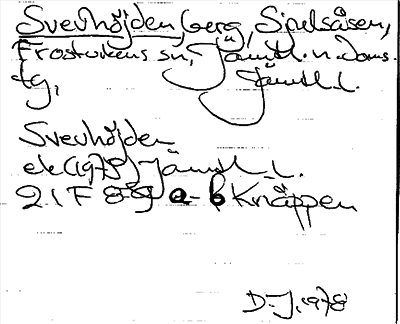 Svenhöjden, berg, Spelsåsen,
Frostvikens sn, Jämtl. n. doms.
tg, Jämtl. l.
Svenhöjden
ek (1975) Jämtl. l.
21F 8-9 a-b Knäppen
D-J. 1978